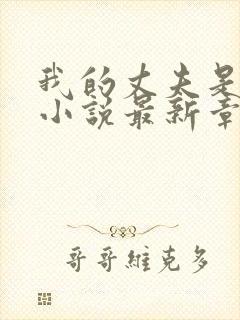 我的丈夫是
小說最新章
哥哥維克多